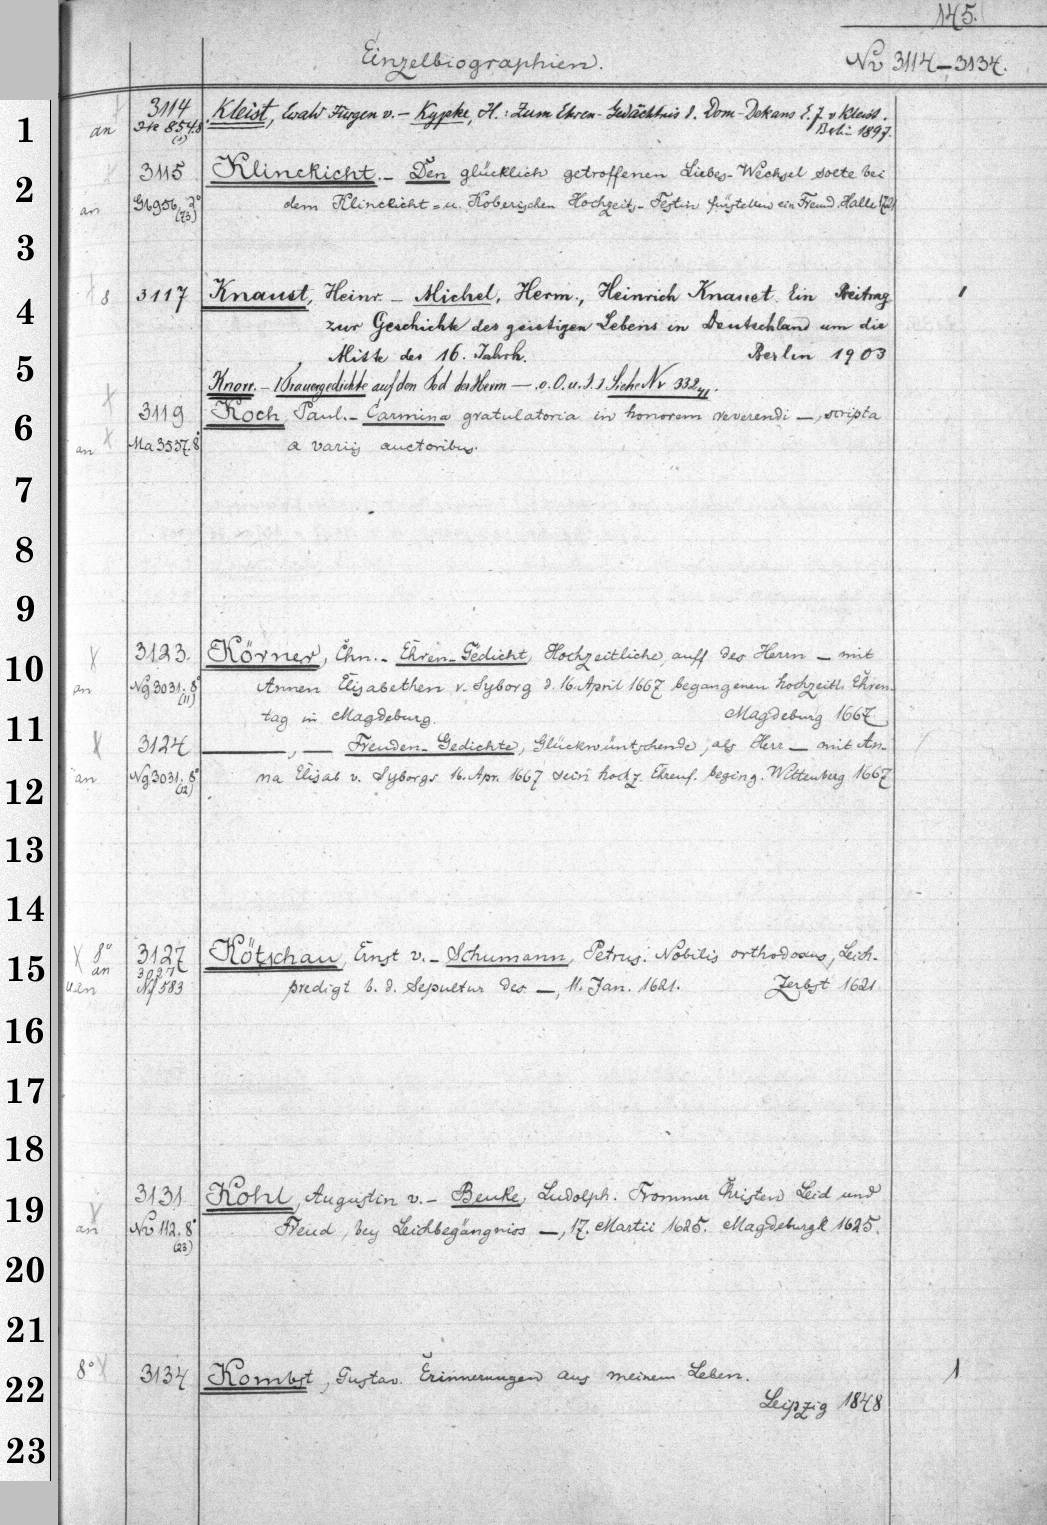 145.
Einzelbiographien.
No 3114–3134.
1
an 3114 Kleist, Ewald Jürgen v. – Kypke, H.: Zum Ehren-Gedächtnis d. Dom-Dekans E. J. v Kleist.
854.8 (1) Berlin 1897.
2
3115 Klinckicht. – Den glücklich getroffenen Liebes-Wechsel solte bei
an Gb 956, 2° (73) dem Klinckicht= u. Koberischen Hochzeits-Festin fürstellen ein Freund. Halle 1721
3
8 3117 Knaust, Heinr. – Michel, Herm., Heinrich Knaust. Ein Beitrag 1
4
zur Geschichte des geistigen Lebens in Deutschland um die
Mitte des 16. Jahrh. Berlin 1903
5
Knorr. – Trauergedichte auf den Tod des Herrn —. o. O. u. J. Siehe Nr 332
3119 Koch, Paul. – Carmina gratulatoria in honorem reverendi —, scripta
6
an Ma 3537. 8° a variis auctoribus.
7
8
9
3123. Körner, Chn. – Ehren-Gedicht, Hochzeitliche, auff des Herrn — mit
10
an Ng 3031. 8° (11) Annen Elisabethen v. Syborg d. 16. April 1667 begangenen hochzeitl. Ehren-
tag in Magdeburg. Magdeburg 1667
11
3124 ———, — Freuden-Gedichte, Glückwüntschende, als Herr — mit An-
an Ng 3031. 8° (12) na Elisab v. Syborgs 16. Apr. 1667 sein hochz. Ehrenf. beging. Wittenberg 1667
12
13
14
8° an 3127 Kötschau, Ernst v. – Schumann, Petrus. Nobilis orthodoxus, Leich-
15
3027 Nf 583 predigt b. d. Sepultur des —, 11. Jan. 1621. Zerbst 1621
16
17
18
3131 Kohl, Augustin v. – Beuke, Ludolph. Frommer Christen Leid und
19
an No 112. 8° (23) Freud, bey Leichbegängniss —, 17. Martii 1625. Magdeburgk 1625.
20
21
8° 3134 Kombst, Gustav. Erinnerungen aus meinem Leben. 1
22
Leipzig 1848
23